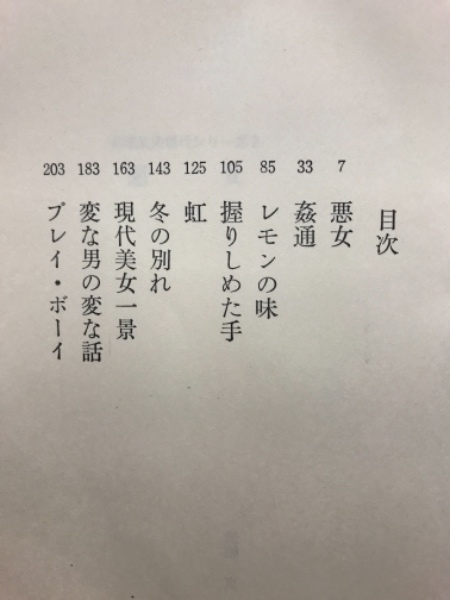 目次
悪女 7
姦通 33
レモンの味 85
握りしめた手 105
虹 125
冬の別れ 143
現代美女一景 163
変な男の変な話 183
プレイ・ボーイ 203